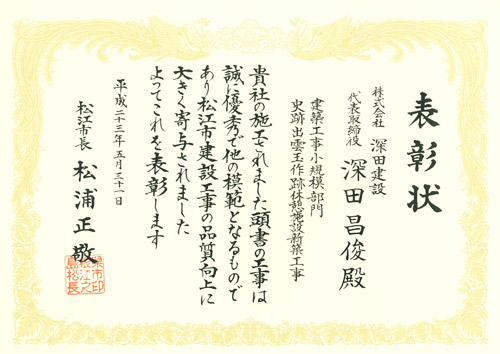 表彰状
株式会社 深田建設
代表取締役 深田昌俊殿
建築工事小規模部門
史跡出雲玉作跡休憩施設新築工事
貴社の施工されました頭書の工事は
誠に優秀で他の模範となるもので
あり松江市建設工事の品質向上に
大きく寄与されました
よってこれを表彰します
平成二十三年五月三十一日
松江市長 松浦正敬